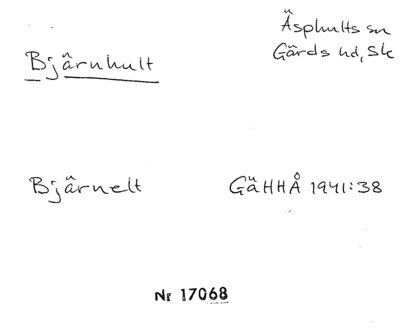 Bjärnhult
Äsphults sn
Gärds hd, Sk
Bjärnelt
GäHHÅ 1941:38
Nr 17068